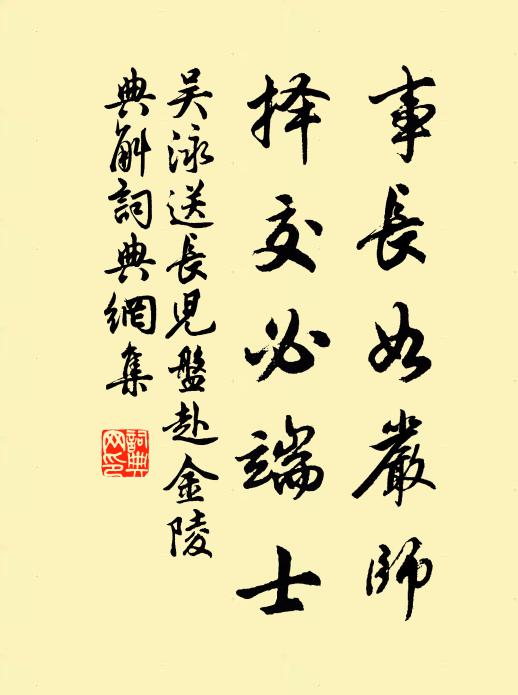 事長如嚴師
择交必端士
吴泳送長児盤赴金陵
典斛詞典網集
詞典
网印